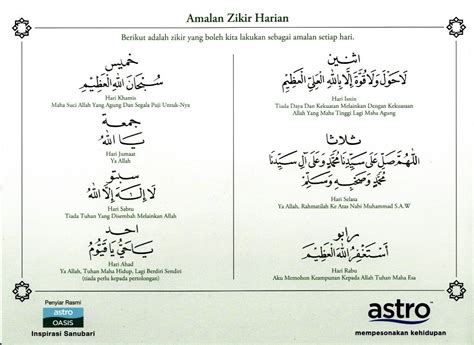 Amalan Zikir Harian
Berikut adalah zikir yang boleh kita lakukan sebagai amalan setiap hari.
اثنين
لَاحَوْلَ وَلَاقُوَّةَ إِلَّا بِاللهِ الْعَلِيِّ الْعَظِيْمِ
Hari Isnin
Tiada Daya Dan Kekuatan Melainkan Dengan Kekuasaan
Allah Yang Maha Tinggi Lagi Maha Agung
ثلاثا
اللَّهُمَّ صَلِّ عَلَى سَيِّدِنَا مُحَمَّدٍ وَعَلَى آلِ سَيِّدِنَا
مُحَمَّدٍ وَصَحْبِهِ وَسَلِّمْ
Hari Selasa
Ya Allah, Rahmatilah Ke Atas Nabi Muhammad S.A.W
رابو
أَسْتَغْفِرُ اللهَ الْعَظِيْمَ
Hari Rabu
Aku Memohon Keampunan Kepada Allah Tuhan Maha Esa
خميس
سُبْحَانَ اللهِ الْعَظِيْمِ
Hari Khamis
Maha Suci Allah Yang Agung Dan Segala Puji Untuk-Nya
جمعة
يَا اللهُ
Hari Jumaat
Ya Allah
سبتو
لَا إِلَهَ إِلَّا اللهُ
Hari Sabtu
Tiada Tuhan Yang Disembah Melainkan Allah
احد
يَاحَيُّ يَا قَيُّوْمُ
Hari Ahad
Ya Allah, Tuhan Maha Hidup, Lagi Berdiri Sendiri
(tiada perlu kepada pertolongan)
Penyiar Rasmi
astro
OASIS
Inspirasi Sanubari
astro
mempesonakan kehidupan